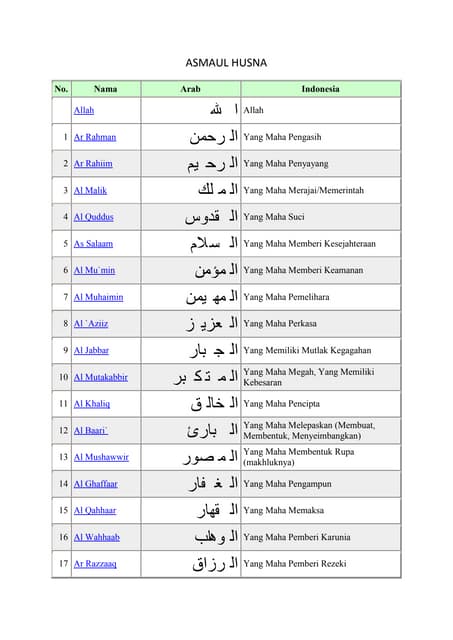 ASMAUL HUSNA
No. Nama Arab Indonesia
Allah ا لله Allah
1 Ar Rahman الـ رحمن Yang Maha Pengasih
2 Ar Rahiim الـ رحـ يم Yang Maha Penyayang
3 Al Malik الـ مـ لك Yang Maha Merajai/Memerintah
4 Al Quddus الـ قدوس Yang Maha Suci
5 As Salaam الـ سـلام Yang Maha Memberi Kesejahteraan
6 Al Mu`min الـ مؤمن Yang Maha Memberi Keamanan
7 Al Muhaimin الـ مهـ يمن Yang Maha Pemelihara
8 Al `Aziiz الـ عزيـ ز Yang Maha Perkasa
9 Al Jabbar الـ جـ بار Yang Memiliki Mutlak Kegagahan
10 Al Mutakabbir الـ مـ تـ كـ بر Yang Maha Megah, Yang Memiliki
Kebesaran
11 Al Khaliq الـ خالـ ق Yang Maha Pencipta
12 Al Baari` الـ بارئ Yang Maha Melepaskan (Membuat,
Membentuk, Menyeimbangkan)
13 Al Mushawwir الـ مـ صور Yang Maha Membentuk Rupa
(makhluknya)
14 Al Ghaffaar الـ غـ فار Yang Maha Pengampun
15 Al Qahhaar الـ قهار Yang Maha Memaksa
16 Al Wahhaab الـ وهاب Yang Maha Pemberi Karunia
17 Ar Razzaaq الـ رزاق Yang Maha Pemberi Rezeki